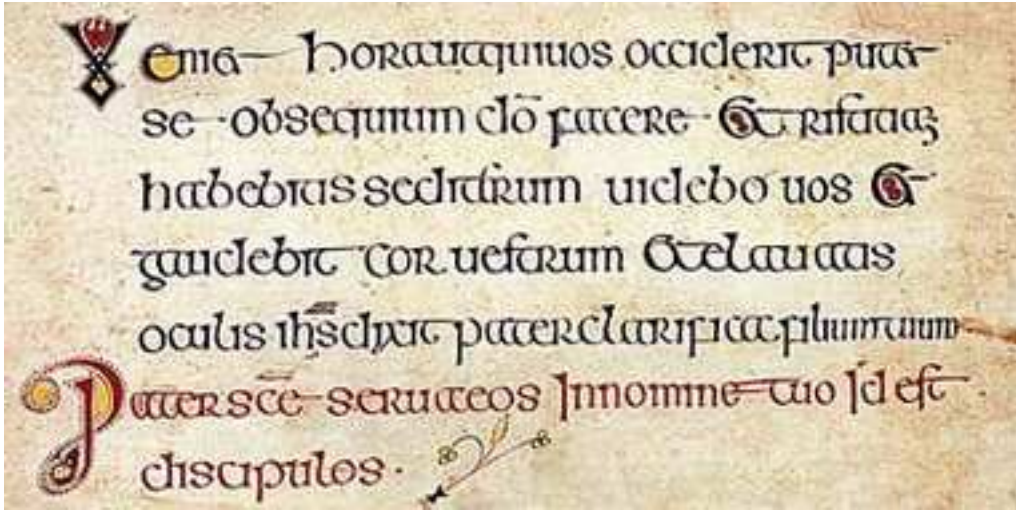 Venia hora ut qui uos occiderit puta
se obsequium dō facere Et tristitiaʒ
habebitis sed iterum uidebo uos Et
gaudebit cor uestrum Et eleuatis
oculis ihs dixit pater clarifica filium tuum
Pater sce serua eos In nomine tuo Id est
discipulos.